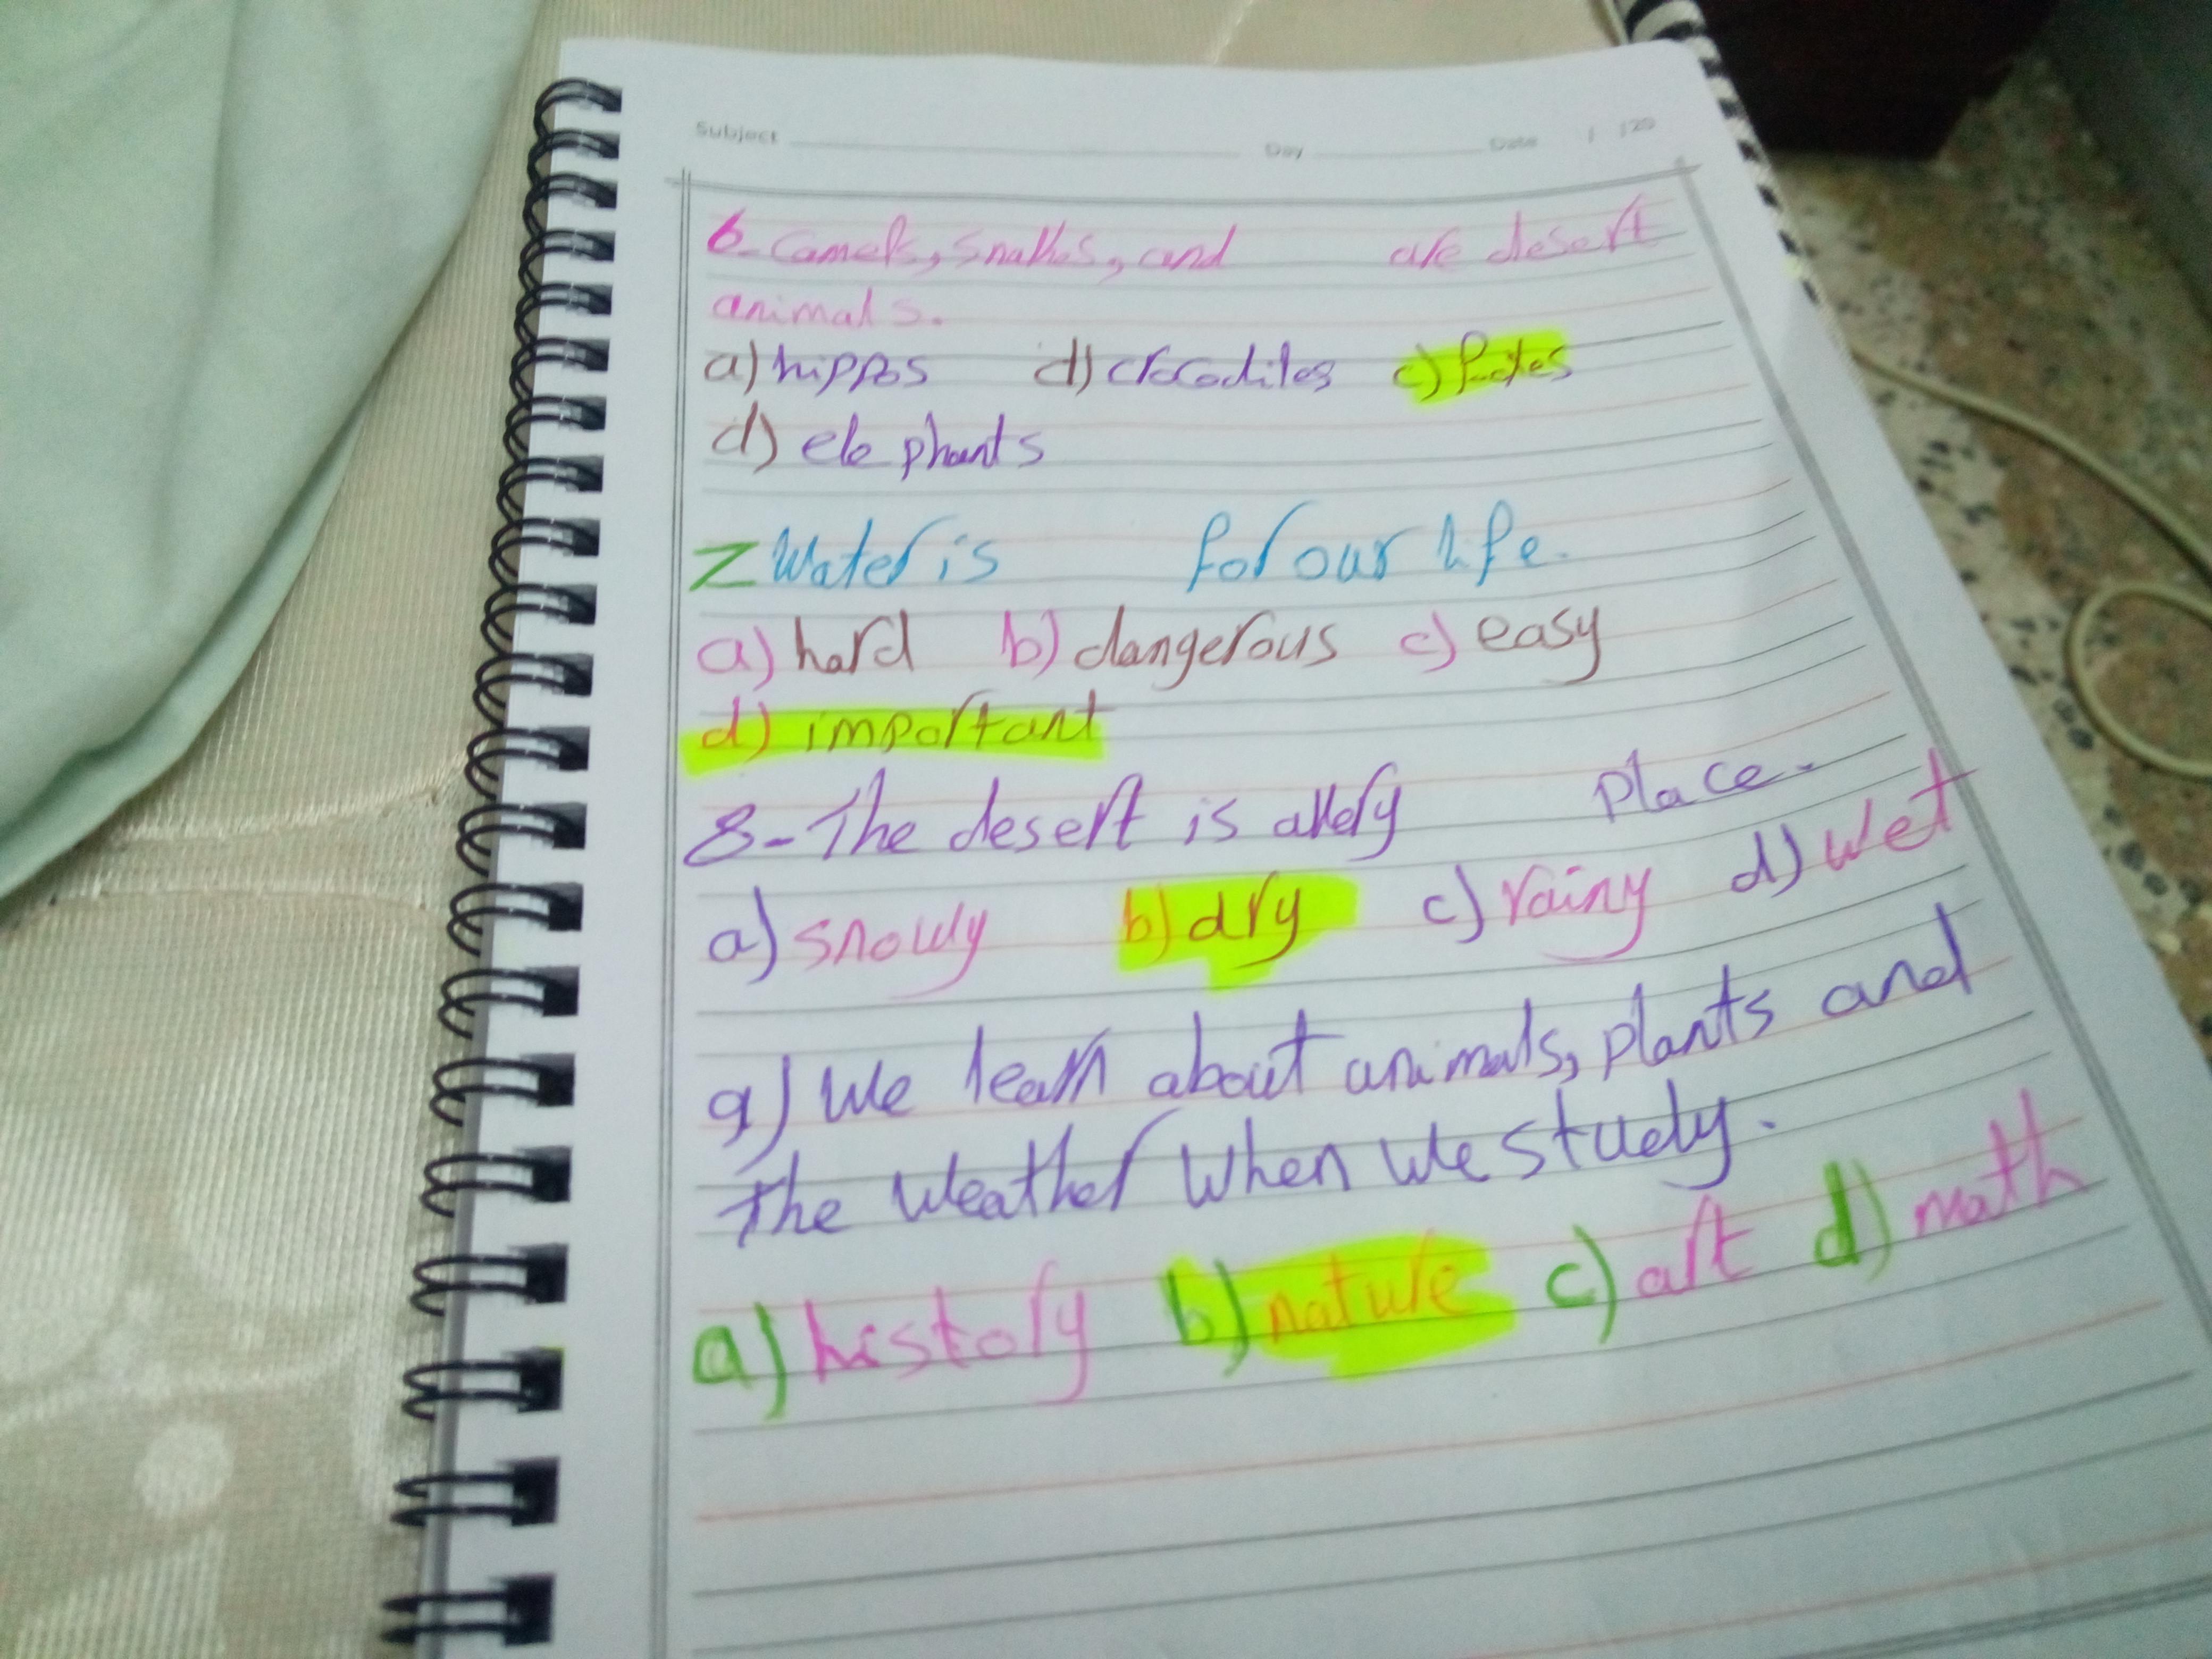 Subject Day Date / /20
6- Camels, snakes, and are desert
animals.
a) hippos d) crocodiles c)
d) elephants
7 Water is for our life.
a) hard b) dangerous c) easy
d) important
8- The desert is a very place.
a) snowy b) dry c) rainy d) wet
9) We learn about animals, plants and
the weather when we study.
a) history b) nature c) art d) math